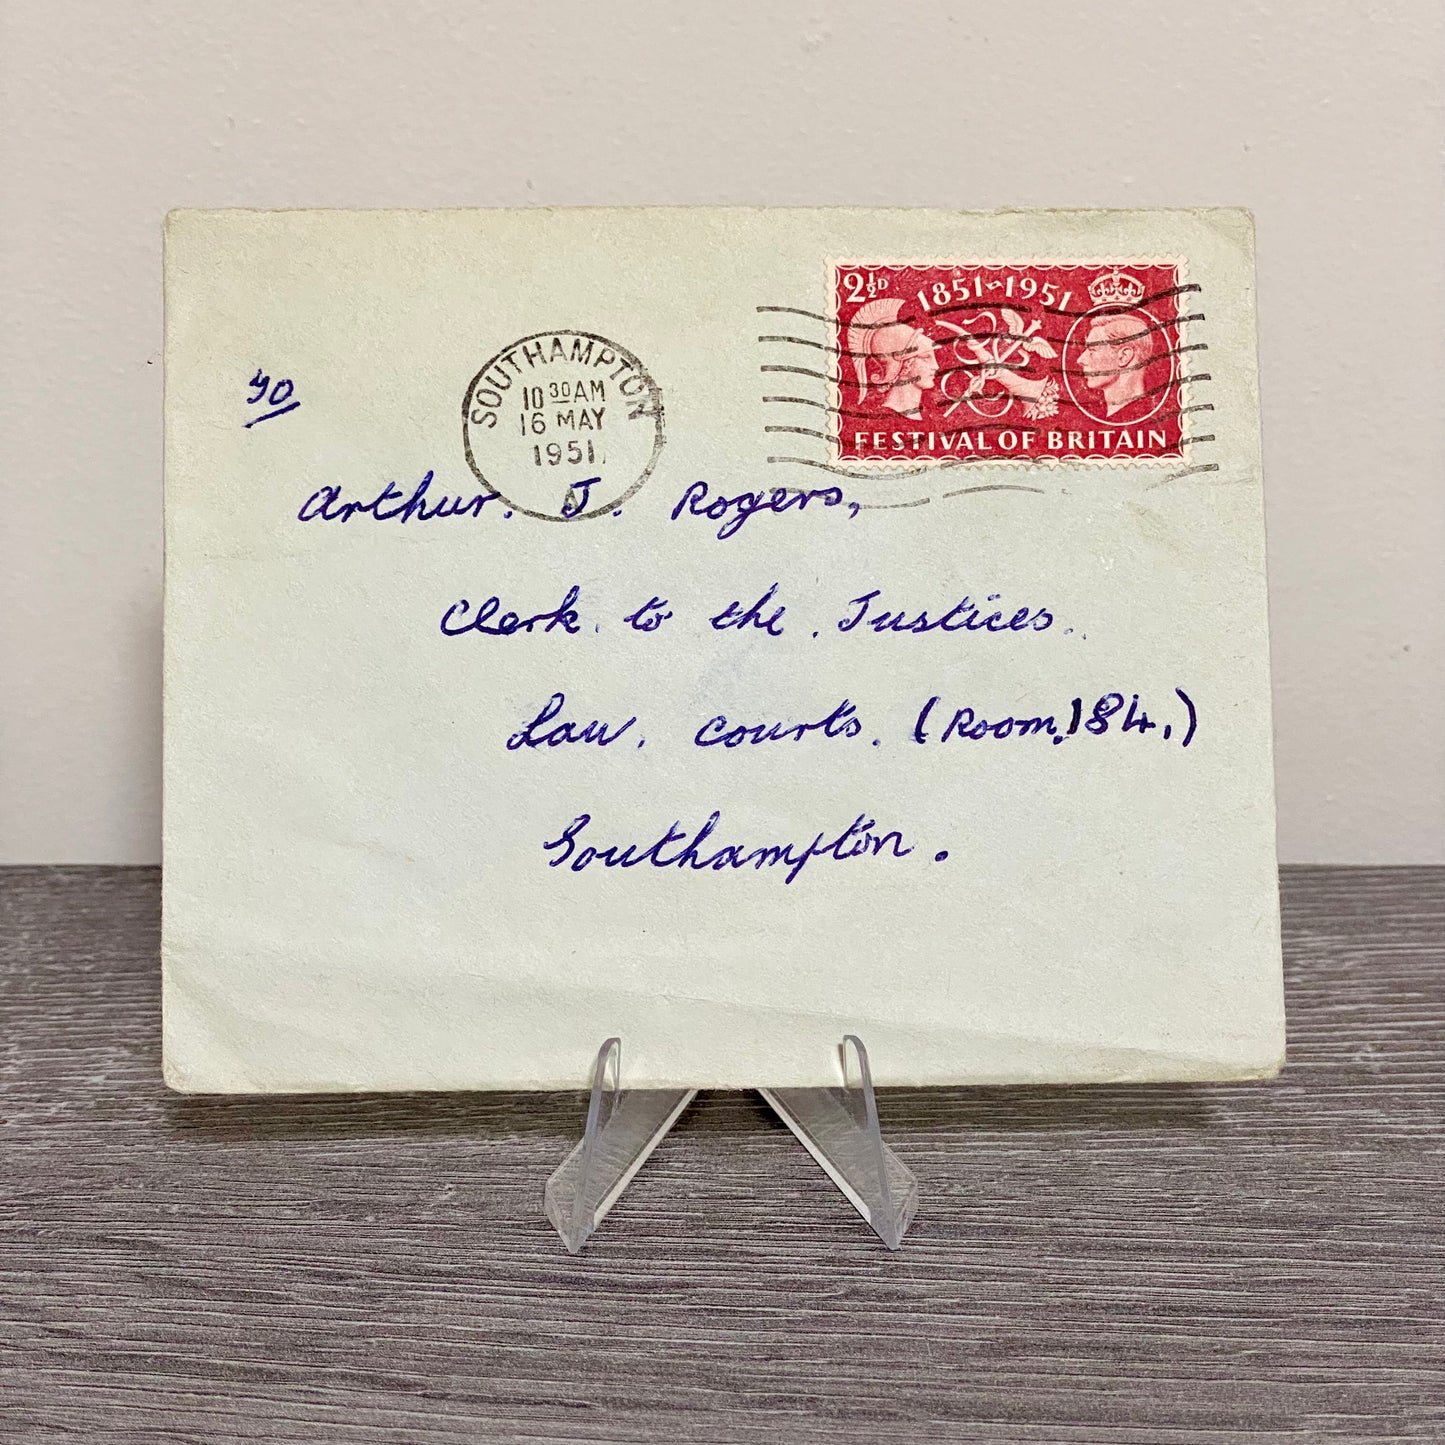 2½D 1851-1951
FESTIVAL OF BRITAIN
SOUTHAMPTON
10 30 AM
16 MAY
1951
Arthur. J. Rogers,
Clerk. to the. Justices.
Law. Courts. (Room.184.)
Southampton.